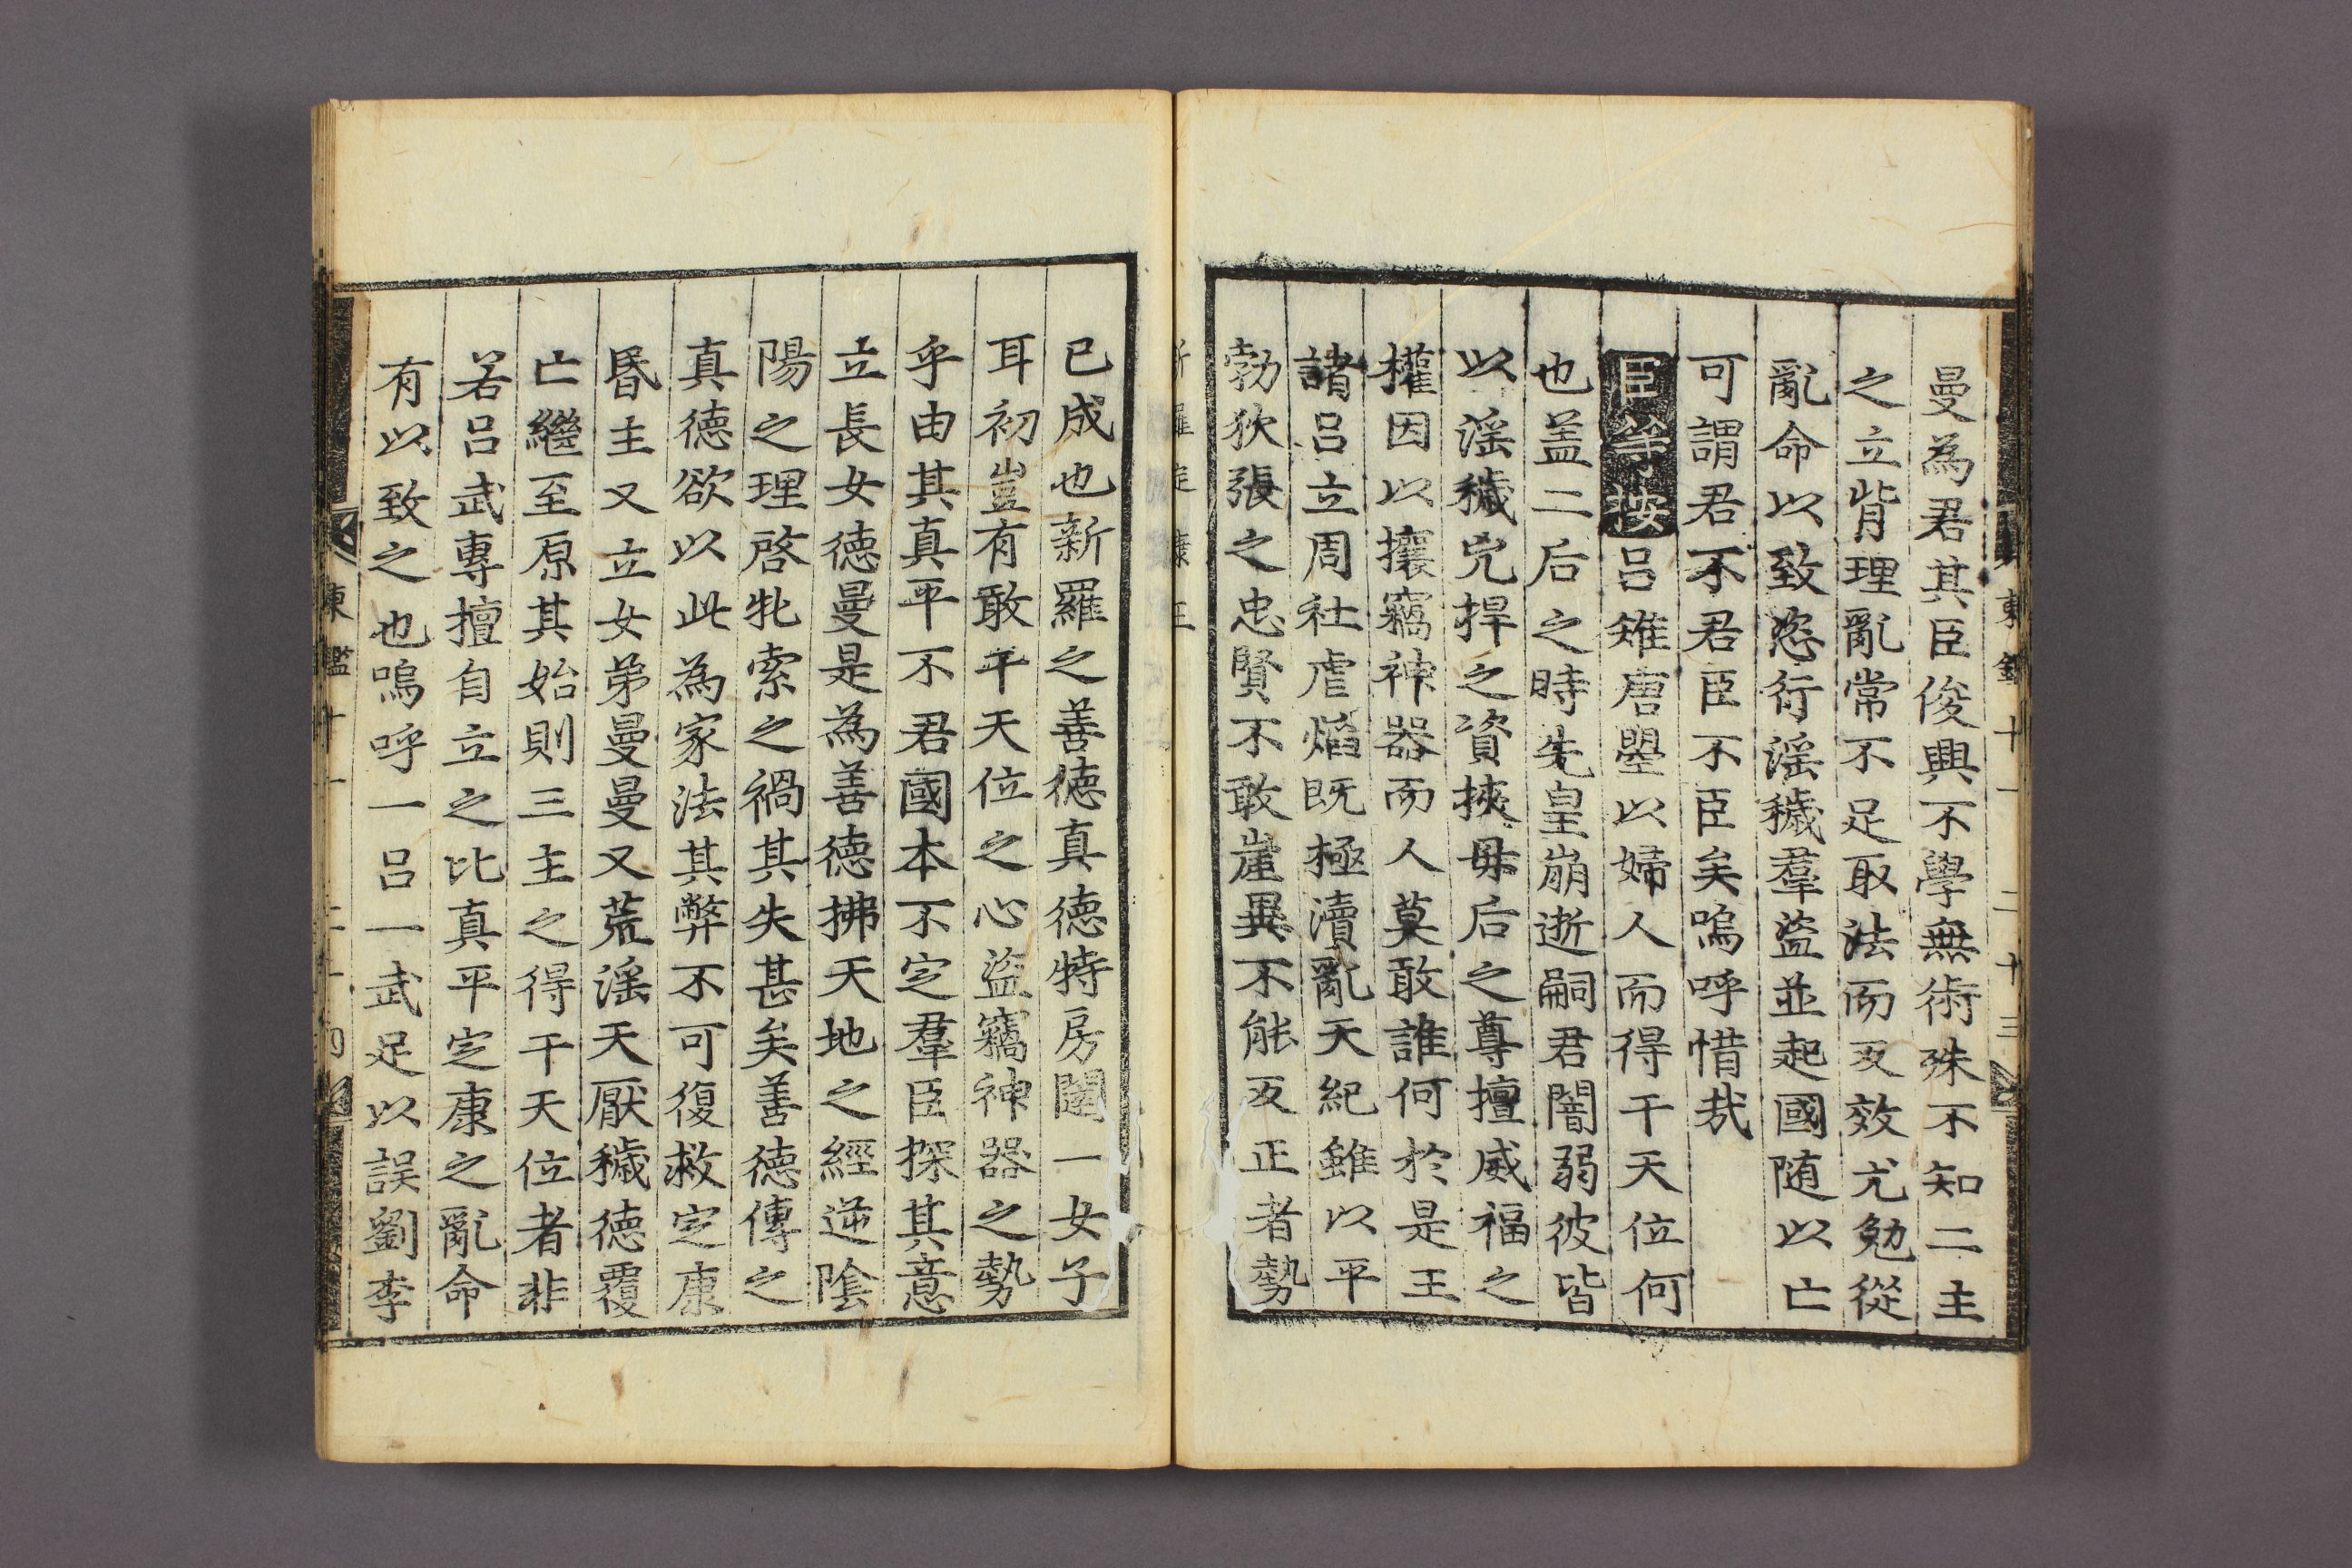 曼為君其臣俊興不學無術殊不知二主
之立背理亂常不足取法而反效尤勉從
亂命以致恣行淫穢羣盜並起國随以亡
可謂君不君臣不臣矣嗚呼惜哉
臣等按呂雉唐曌以婦人而得干天位何
也盖二后之時先皇崩逝嗣君闇弱彼皆
以淫穢兇捍之資挾毋后之尊擅威福之
權因以攘竊神器而人莫敢誰何於是王
諸呂立周社虐焰既極瀆亂天紀雖以平
勃狄張之忠賢不敢崖異不能反正者勢
已成也新羅之善德真德特房闥一女子
耳初豈有敢干天位之心盜竊神器之勢
乎由其真平不君國本不定羣臣探其意
立長女德曼是為善德拂天地之經逆陰
陽之理啓牝索之禍其失甚矣善德傳之
真德欲以此為家法其弊不可復救定康
昬主又立女弟曼曼又荒淫天厭穢德覆
亡繼至原其始則三主之得干天位者非
若呂武專擅自立之比真平定康之亂命
有以致之也嗚呼一呂一武足以誤劉李
東鑑十一
二十三